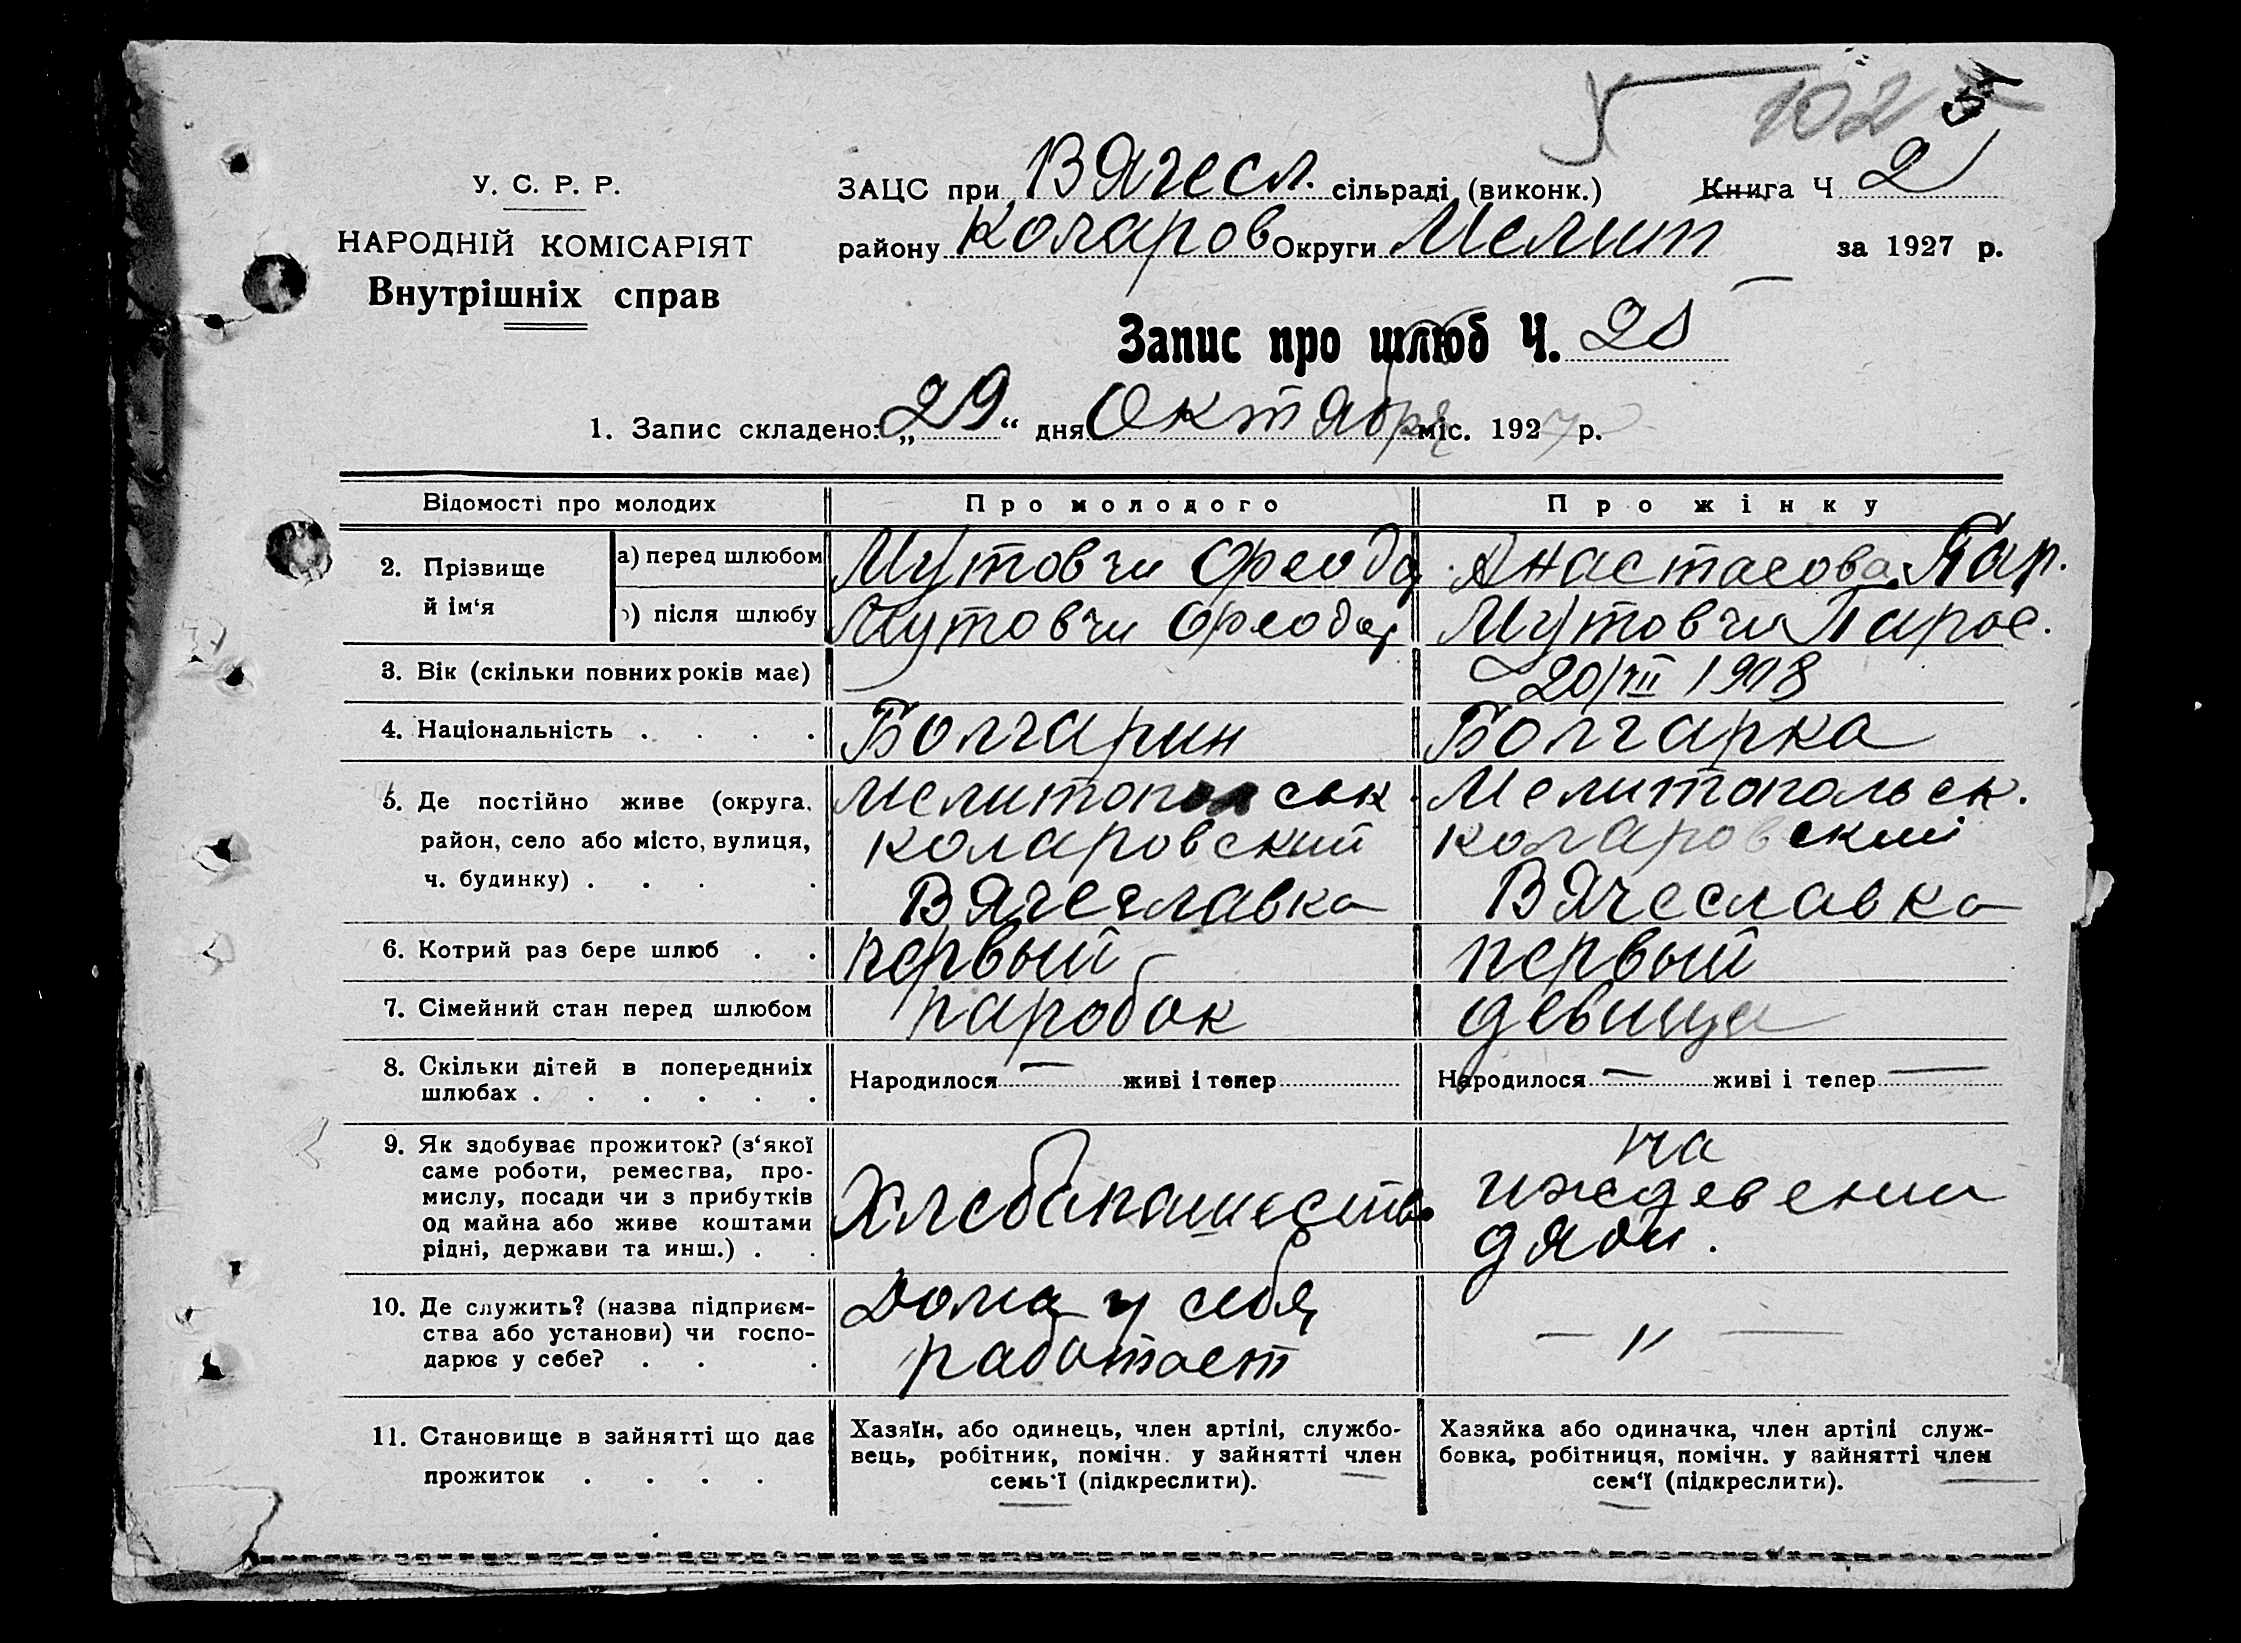 102
У. С. Р. Р.
НАРОДНІЙ КОМІСАРІЯТ
Внутрішніх справ
ЗАЦС при Вячесл. сільраді (виконк.) Книга Ч 2
району Коларов Округи Мелит за 1927 р.
Запис про шлюб Ч. 28
1. Запис складено: „29“ дня Октября міс. 1927 р.
Відомості про молодих Про молодого Про жінку
2. Прізвище й ім‘я
а) перед шлюбом Мутовчи Феодор Анастасова Пар.
) після шлюбу Мутовчи Феодор Мутовчи Парас.
3. Вік (скільки повних років має) 20/VII 1908
4. Національність . . . . Болгарин Болгарка
5. Де постійно живе (округа, Мелитопольск Мелитопольск.
район, село або місто, вулиця, Коларовский Коларовский
ч. будинку) . . . . Вячеславка Вячеславка
6. Котрий раз бере шлюб . . первый первый
7. Сімейний стан перед шлюбом паробок девица
8. Скільки дітей в попередниіх Народилося — живі і тепер Народилося — живі і тепер —
шлюбах . . . . . .
9. Як здобуває прожиток? (з‘якої
саме роботи, ремества, про-
мислу, посади чи з прибутків
од майна або живе коштами
рідні, держави та инш.) . .
Хлебопашеств.
на
иждевении
дяди.
10. Де служить? (назва підприєм-
ства або установи) чи госпо-
дарює у себе? . . .
Дома у себя
работает
— " —
11. Становище в зайнятті що дає
прожиток . . . .
Хазяїн, або одинець, член артілі, службо-
вець, робітник, помічн. у зайнятті член
семь‘ї (підкреслити).
Хазяйка або одиначка, член артілі служ-
бовка, робітниця, помічн. у зайнятті член
сем‘ї (підкреслити).